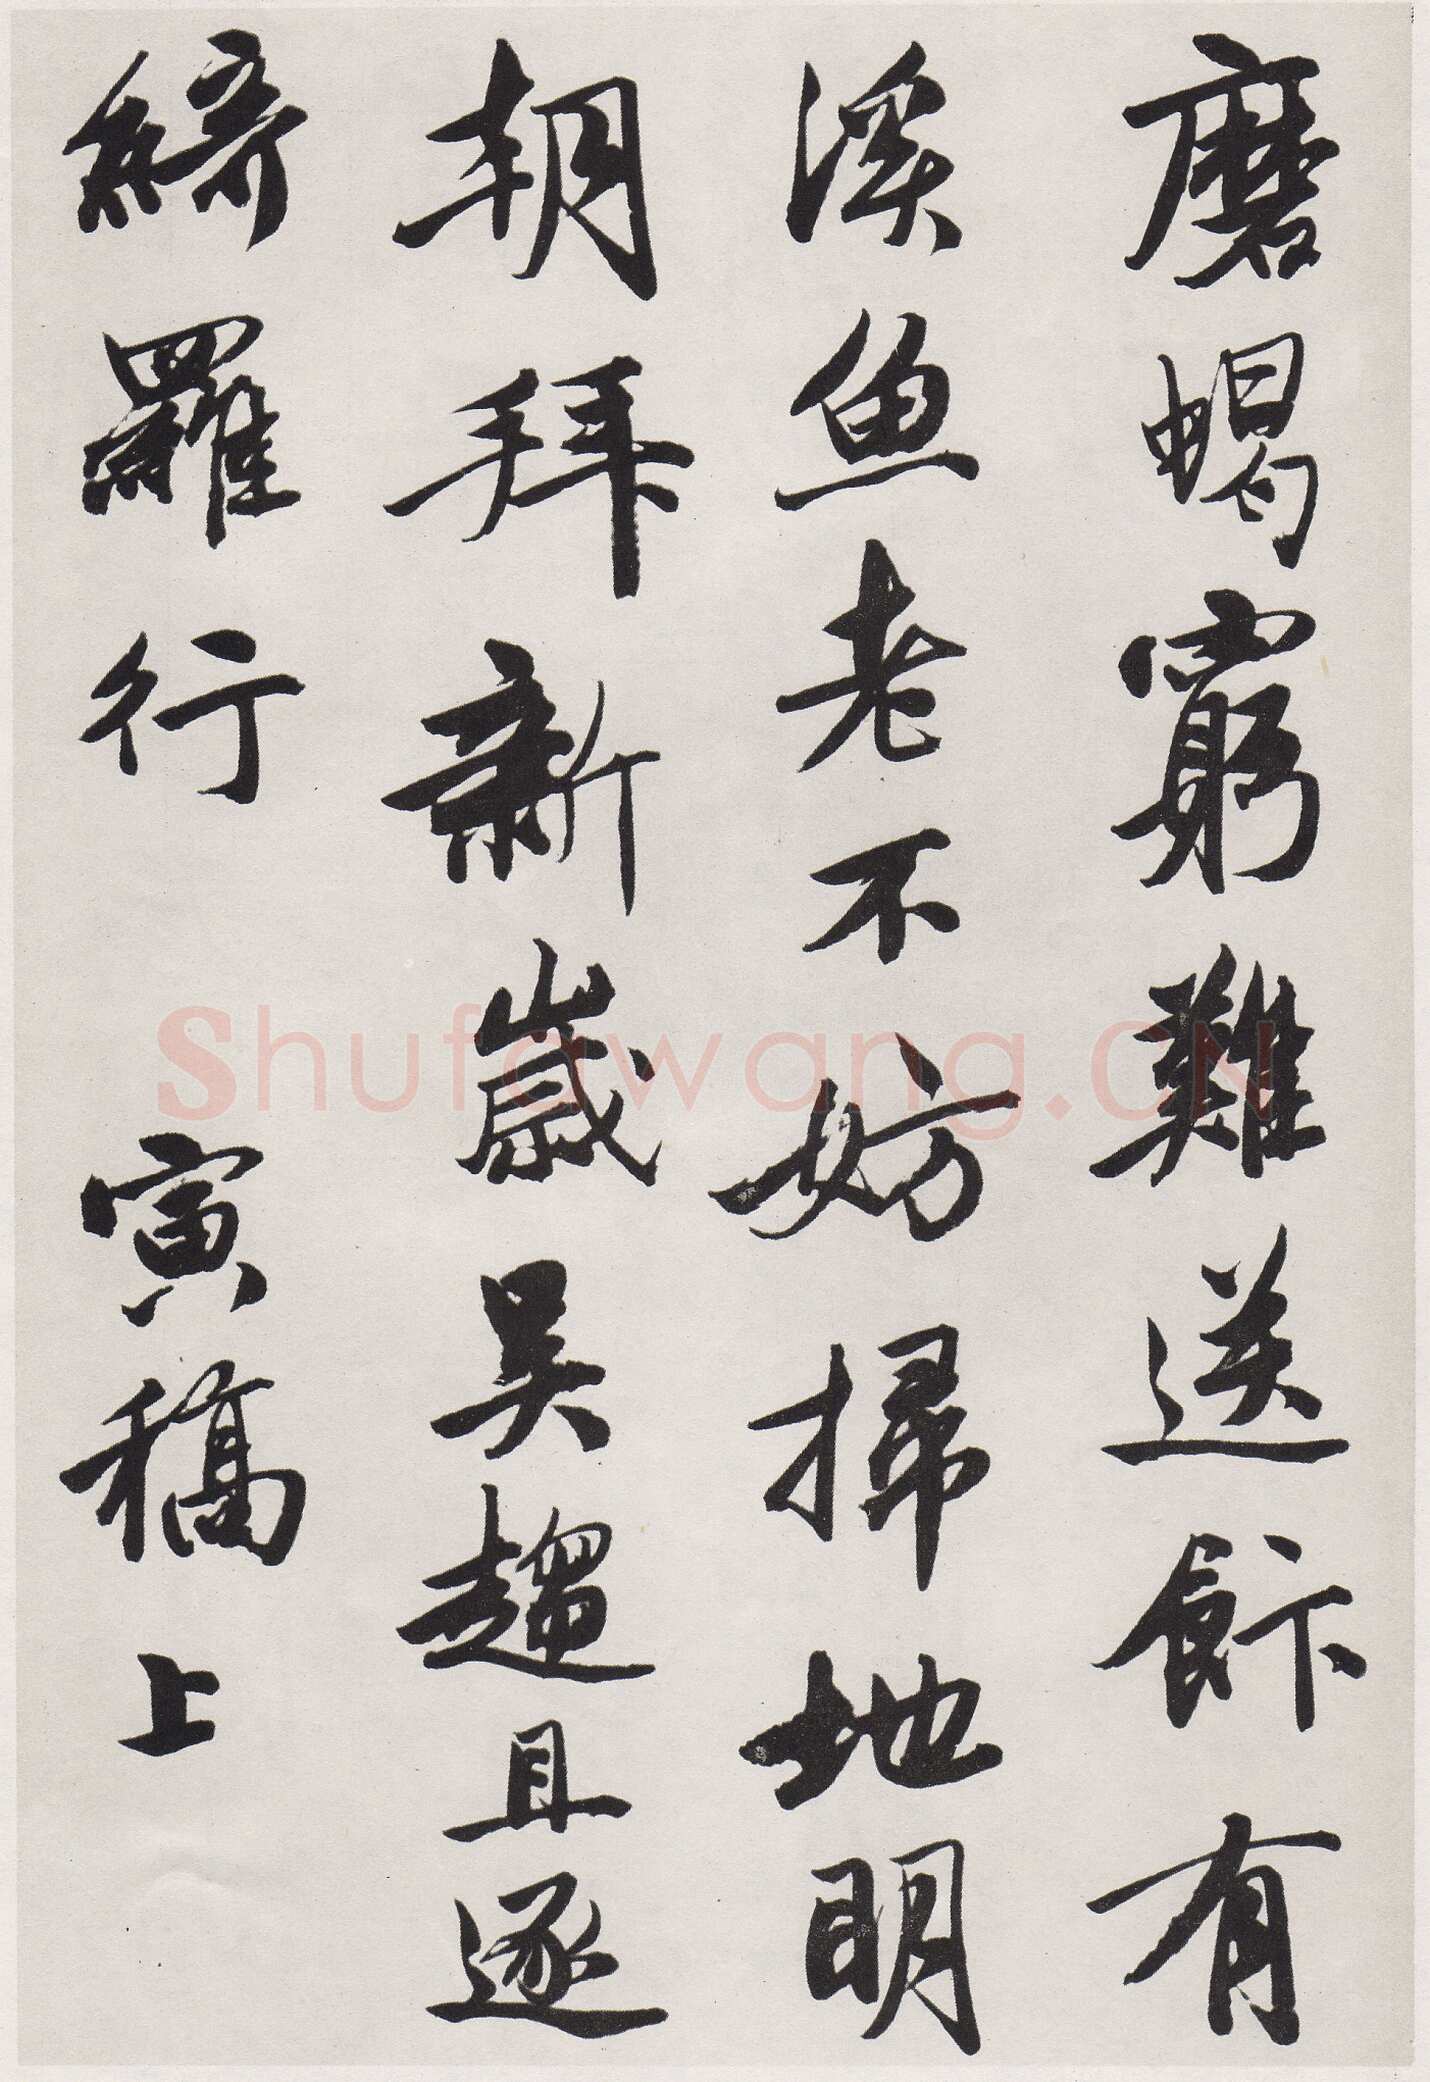 磨蝎窮難送飰有
溪魚老不妨掃地明
朝拜新歲吳趨且逐
綺羅行 寅稿上
Shufawang.CN